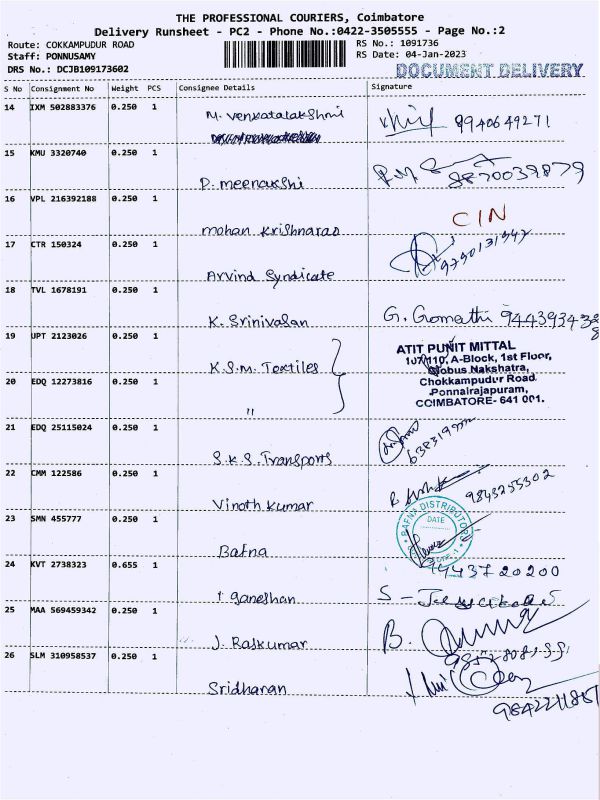 THE PROFESSIONAL COURIERS, Coimbatore
Delivery Runsheet - PC2 - Phone No.:0422-3505555 - Page No.:2
Route: COKKAMPUDUR ROAD RS No.: 1091736
Staff: PONNUSAMY RS Date: 04-Jan-2023
DRS No.: DCJB109173602 DOCUMENT DELIVERY
S No Consignment No Weight PCS Consignee Details Signature
14 IXM 502883376 0.250 1 M. Venkatalakshmi
8940649271
15 KMU 3320740 0.250 1 P. meenakshi
8870039879
16 VPL 216392188 0.250 1 mohan krishnarao CIN
17 CTR 150324 0.250 1 Arvind Syndicate
18 TVL 1678191 0.250 1 K. Srinivasan G. Gomathi
19 UPT 2123026 0.250 1 K.S.M. Textiles
ATIT PUNIT MITTAL
107/110, A-Block, 1st Floor,
Globus Nakshatra,
Chokkampudur Road
Ponnairajapuram,
COIMBATORE- 641 001.
20 EDQ 12273816 0.250 1 "
21 EDQ 25115024 0.250 1 S.K.S. Transports
22 CMM 122586 0.250 1 Vinoth Kumar
9843255302
23 SMN 455777 0.250 1 Bafna
BAFNA DISTRIBUTORS
DATE
24 KVT 2738323 0.655 1 ganeshan
9443720200
25 MAA 569459342 0.250 1 J. Rajkumar
26 SLM 310958537 0.250 1 Sridharan